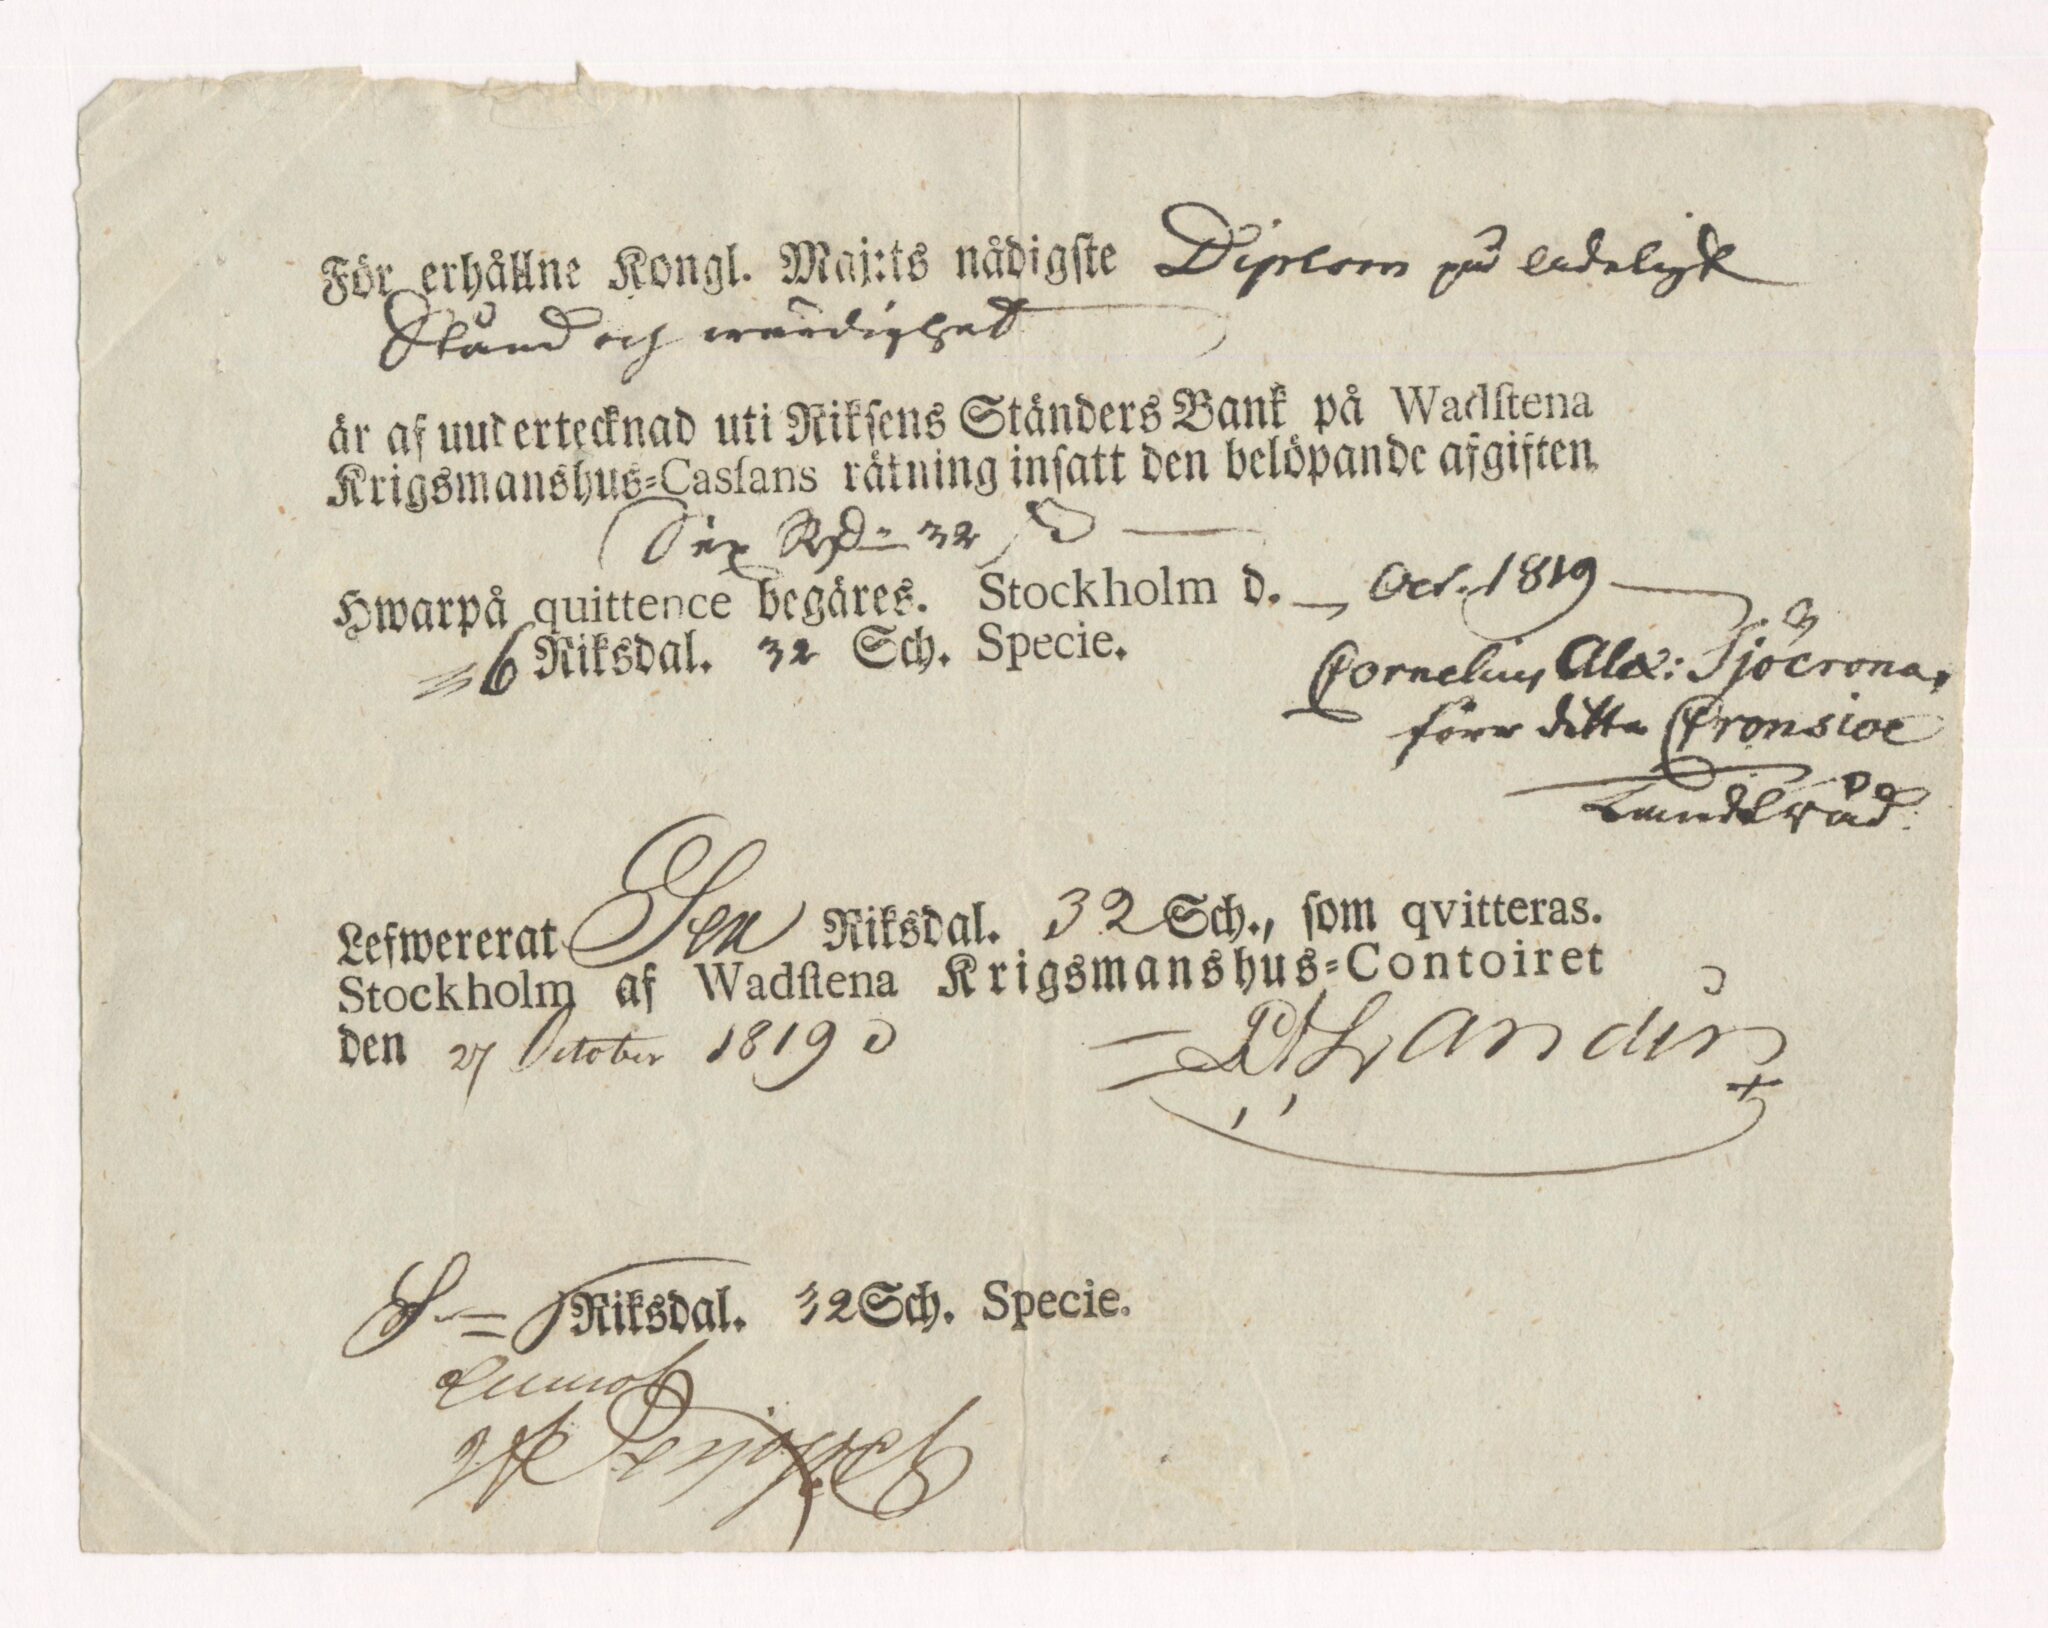 För erhållne Kongl. Maj:ts nådigste Diplom på adeligt
Stånd och wärdighet
är af uudertecknad uti Rikſens Ständers Bank på Wadſtena
Krigsmanshus=Casſans räkning inſatt den belöpande afgiften
Sex Rd 32 s
Hwarpå quittence begäres. Stockholm d. Oct. 1819
6 Riksdal. 32 Sch. Specie.
Cornelius Alex: Sjöcrona,
förr ditto Cronsioe
Landtråd.
Lefwererat Sex Riksdal. 32 Sch., ſom qvitteras.
Stockholm af Wadſtena Krigsmanshus=Contoiret
den 27 October 1819
Landin
Riksdal. 32 Sch. Specie.